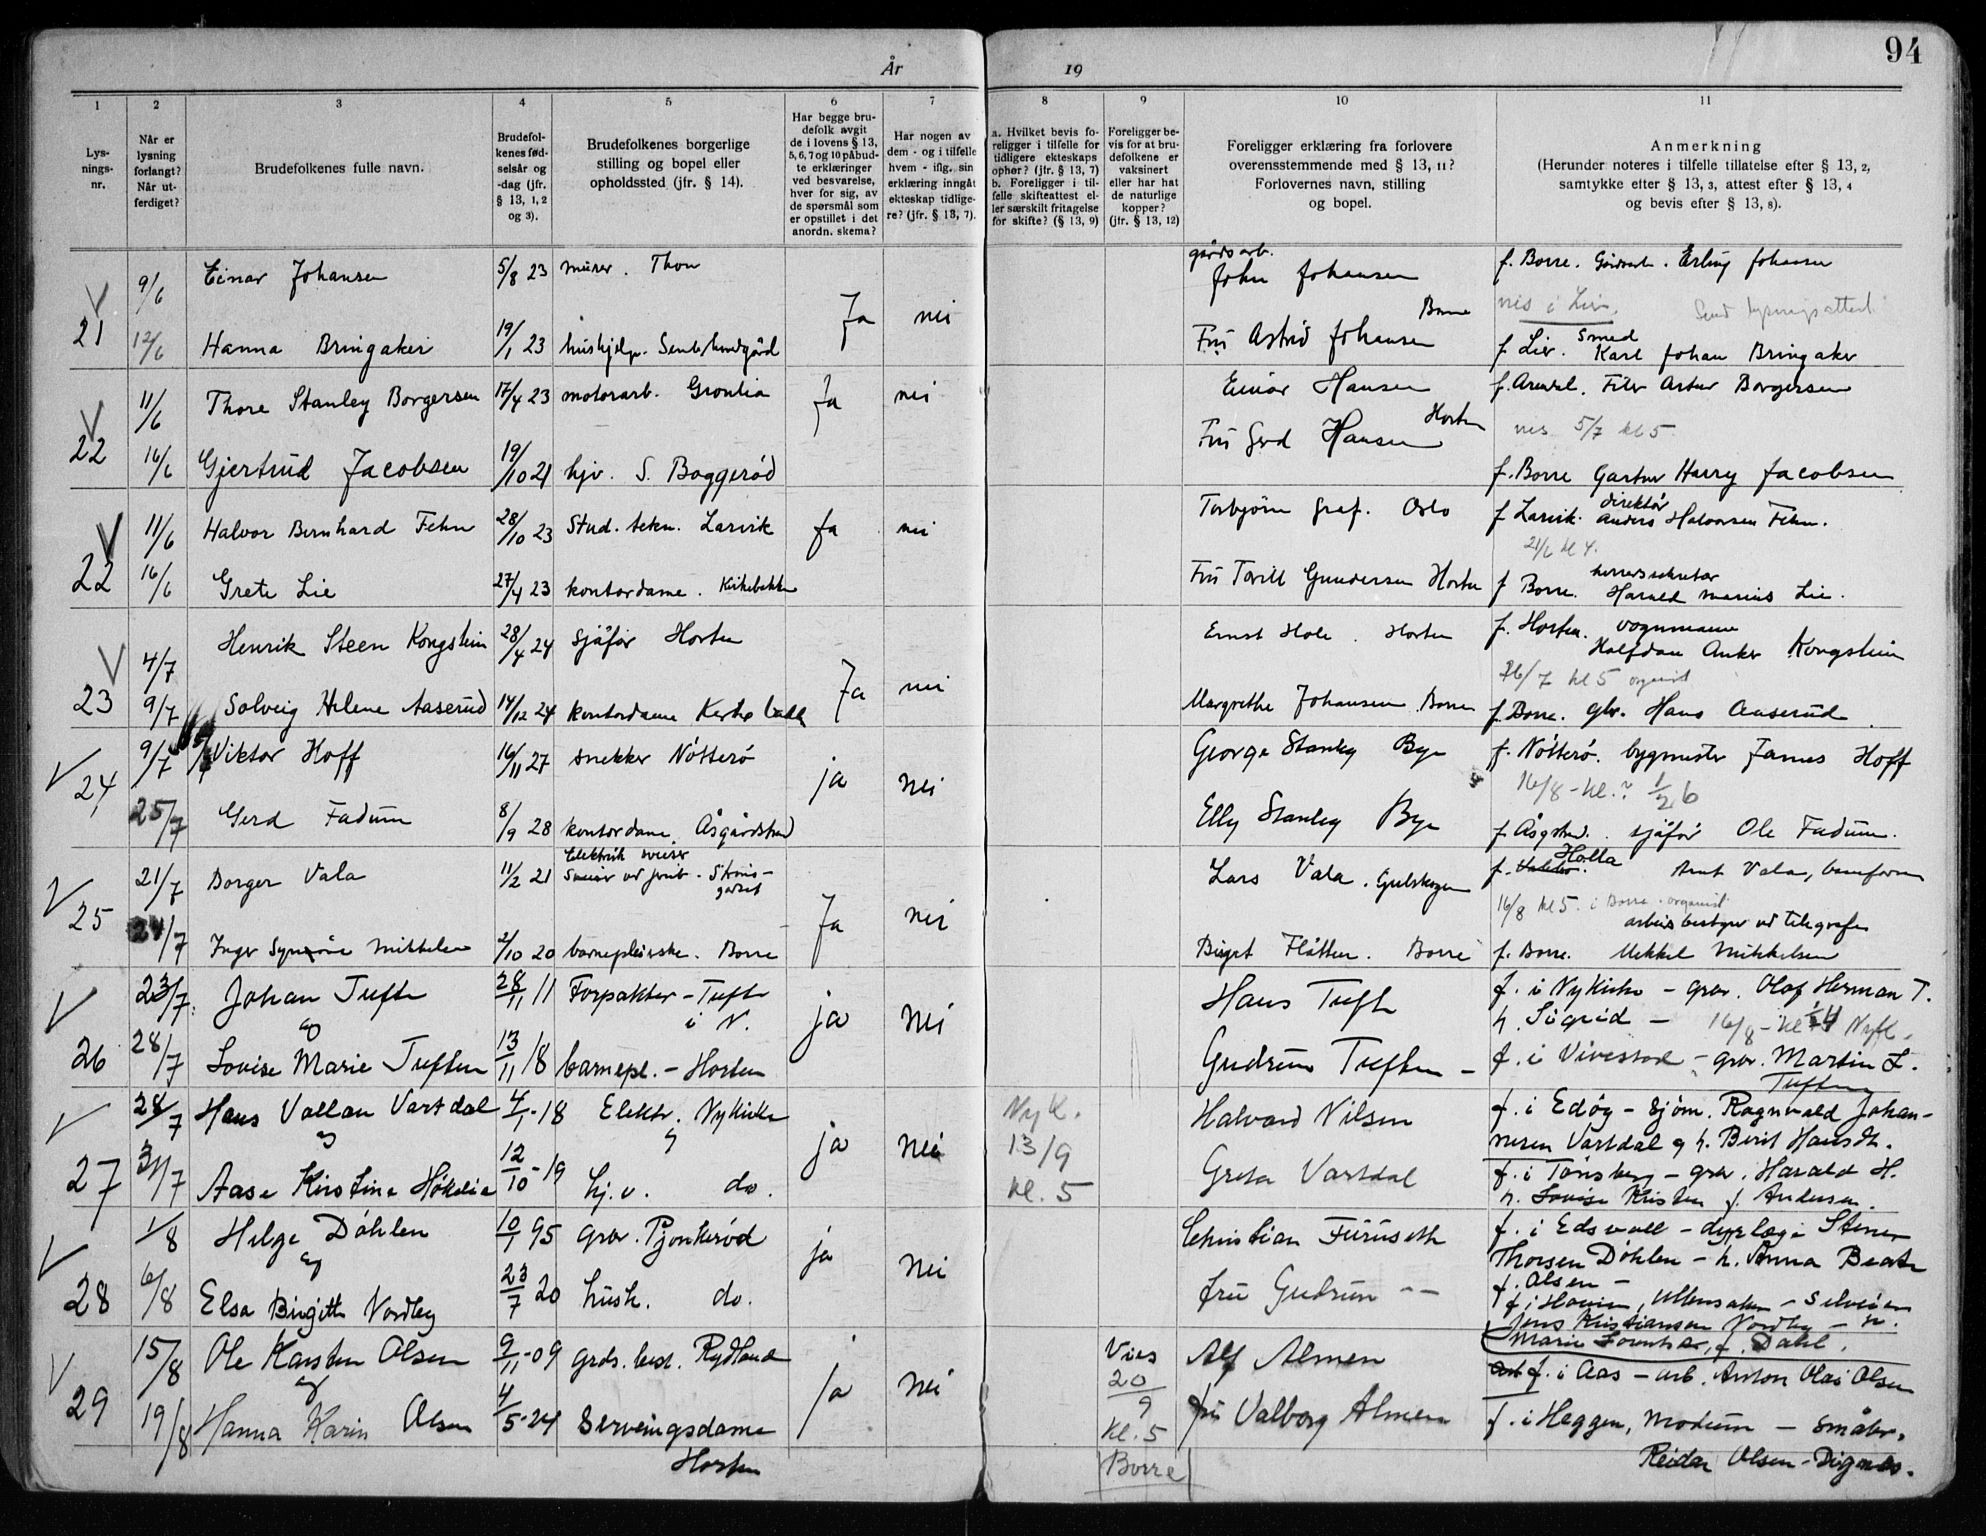 94
År
19
1
2
3
4
5
6
7
8
9
10
11
Lys-
nings-
nr.
Når er
lysning
forlangt?
Når ut-
ferdiget?
Brudefolkenes fulle navn.
Brudefol-
kenes fød-
selsår og
-dag (jfr.
§ 13, 1, 2
og 3).
Brudefolkenes borgerlige
stilling og bopel eller
opholdssted (jfr. § 14).
Har begge bru-
defolk avgit
de i lovens § 13,
5, 6, 7 og 10 påbud-
te erklæringer
ved besvarelse,
hver for sig, av
de spørsmål som
er opstillet i det
anordn. skema?
Har nogen av
dem - og i tilfelle
hvem - iflg. sin
erklæring inngått
ekteskap tidlige-
re? (jfr. § 13, 7).
a. Hvilket bevis fo-
religger i tilfelle for
tidligere ekteskaps
ophør? (jfr. § 13, 7)
b. Foreligger i til-
felle skifteattest el-
ler særskilt fritagelse
for skifte? (§ 13, 9)
Foreligger be-
vis for at bru-
defolkene er
vaksinert
eller har hat
de naturlige
kopper?
(jfr. § 13, 12)
Foreligger erklæring fra forlovere
overensstemmende med § 13, 11?
Forlovernes navn, stilling
og bopel.
Anmerkning
(Herunder noteres i tilfelle tillatelse efter § 13, 2,
samtykke etter § 13, 3, attest efter § 13, 4
og bevis efter § 13, 8).
21
9/6
Einar Johansen
5/8 23
murer. Thon
Ja
nei
gårdsarb.
John Johansen
f. Borre. Gårdsarb. Erling Johansen
Borre
Send lysningsattest
12/6
Hanna Bringaker
19/1 23
hushjelp. Semb hovedgård
Fru Astrid Johansen
f Lier. Smed
Karl Johan Bringaker
22
11/6
Thore Stanley Borgersen
17/4 23
motorarb. Gronlia
Ja
nei
Einar Hansen
Horten
f. Arendal. Filer Artur Borgersen
5/7 kl 5
16/6
Gjertrud Jacobsen
19/10 21
hjv. S. Baggerød
Fru Gerd Hansen
f. Borre Gartner Harry Jacobsen
22
11/6
Halvor Bernhard Fehn
28/10 23
Stud. tekn. Larvik
Ja
nei
Torbjørn Graf. Oslo
f Larvik. direktør
Anders Halvorsen Fehn.
21/6 kl 4.
16/6
Grete Lie
27/4 23
kontordame. Kirkebakken
Fru Torill Gundersen Horten
f Borre. herredssekretær
Harald Marius Lie.
23
4/7
Henrik Steen Kongstein
28/4 24
sjåfør Horten
Ja
nei
Ernst Hole. Horten
f. Horten. vognmann
Halfdan Anker Kongstein
26/7 kl 5 organist
9/7
Solveig Helene Aaserud
14/12 24
kontordame Kirkebakk
Margrethe Johansen. Borre
f. Borre. gbr. Hans Aaserud.
24
9/7
Viktor Hoff
16/11 27
snekker Nøtterø
ja
nei
George Stanley Bye
f. Nøtterø. bygmester James Hoff
16/8 - kl. ? 1/2 6
25/7
Gerd Fadum
8/9 28
kontordame Åsgårdstrand
Elly Stanley Bye
f. Åsgstrand. sjåfør Ole Fadum.
25
21/7
Borger Vala
11/2 21
Elektrisk sveiser
Ja
nei
Lars Vala. Gulskogen
f. Holla
Arnt Vala, baneform
16/8 kl 5. i Borre. organist
arbeidsbestyrer ved telegrafen
24/7
Inger Synnøve Mikkelsen
2/10 20
barnepleierske. Borre
Birgit Flåtten. Borre
f. Borre. Mekkel Mikkelsen
26
23/7
Johan Tufte
og
28/11 11
Forpakter - Tufte
i N.
ja
nei
Hans Tufte
f. i Nykirke - grbr. Olaf Herman T.
h. Sigrid -
28/7
Lovise Marie Tuften
13/11 18
barnepl. - Horten
Gudrun Tuften -
f. i Vivestad - grbr. Martin L.
Tuften
27
28/7
Hans Vallan Vartdal
og
4/1 - 18
Elektr. Nykirke
ja
nei
Nyk.
13/9
kl. 5
Halvard Nilsen
f. i Edøy - Sjøm. Ragnvald Johan-
nesen Vartdal og h. Berit Hansdt.
31/7
Aase Kirstine Høkelie
12/10 - 19
hj.v. do.
Greta Vartdal
f. i Tønsberg - grbr. Harald H.
h. Lovise Kristine f. Andersen.
28
1/8
Helge Døhlen
og
10/1 95
grbr. Pjonkerød
ja
nei
Christian Furuseth
f. i Eidsvoll - dyrlæge Stener
Thorsen Døhlen - h. Anna Beate
f. Olsen -
6/8
Elsa Birgitte Nordby
23/7 20
hush. do.
fru Gudrun - -
f. i Hovin, Ullensaker -
Jens Kristiansen Nordby - h.
Marie f. Dahl.
29
15/8
Ole Karsten Olsen
og
9/11 - 09
grds. best. Rydland
ja
nei
Vies
20/9
kl. 5
Borre
Alf Almen
f. i Aas - arb. Anton Olai Olsen
19/8
Hanna Karin Olsen
4/5 - 24
Serveringsdame
Horten
fru Valborg Almen
f. i Heggen, Modum - småbr.
Reidar Olsen - Digenes.